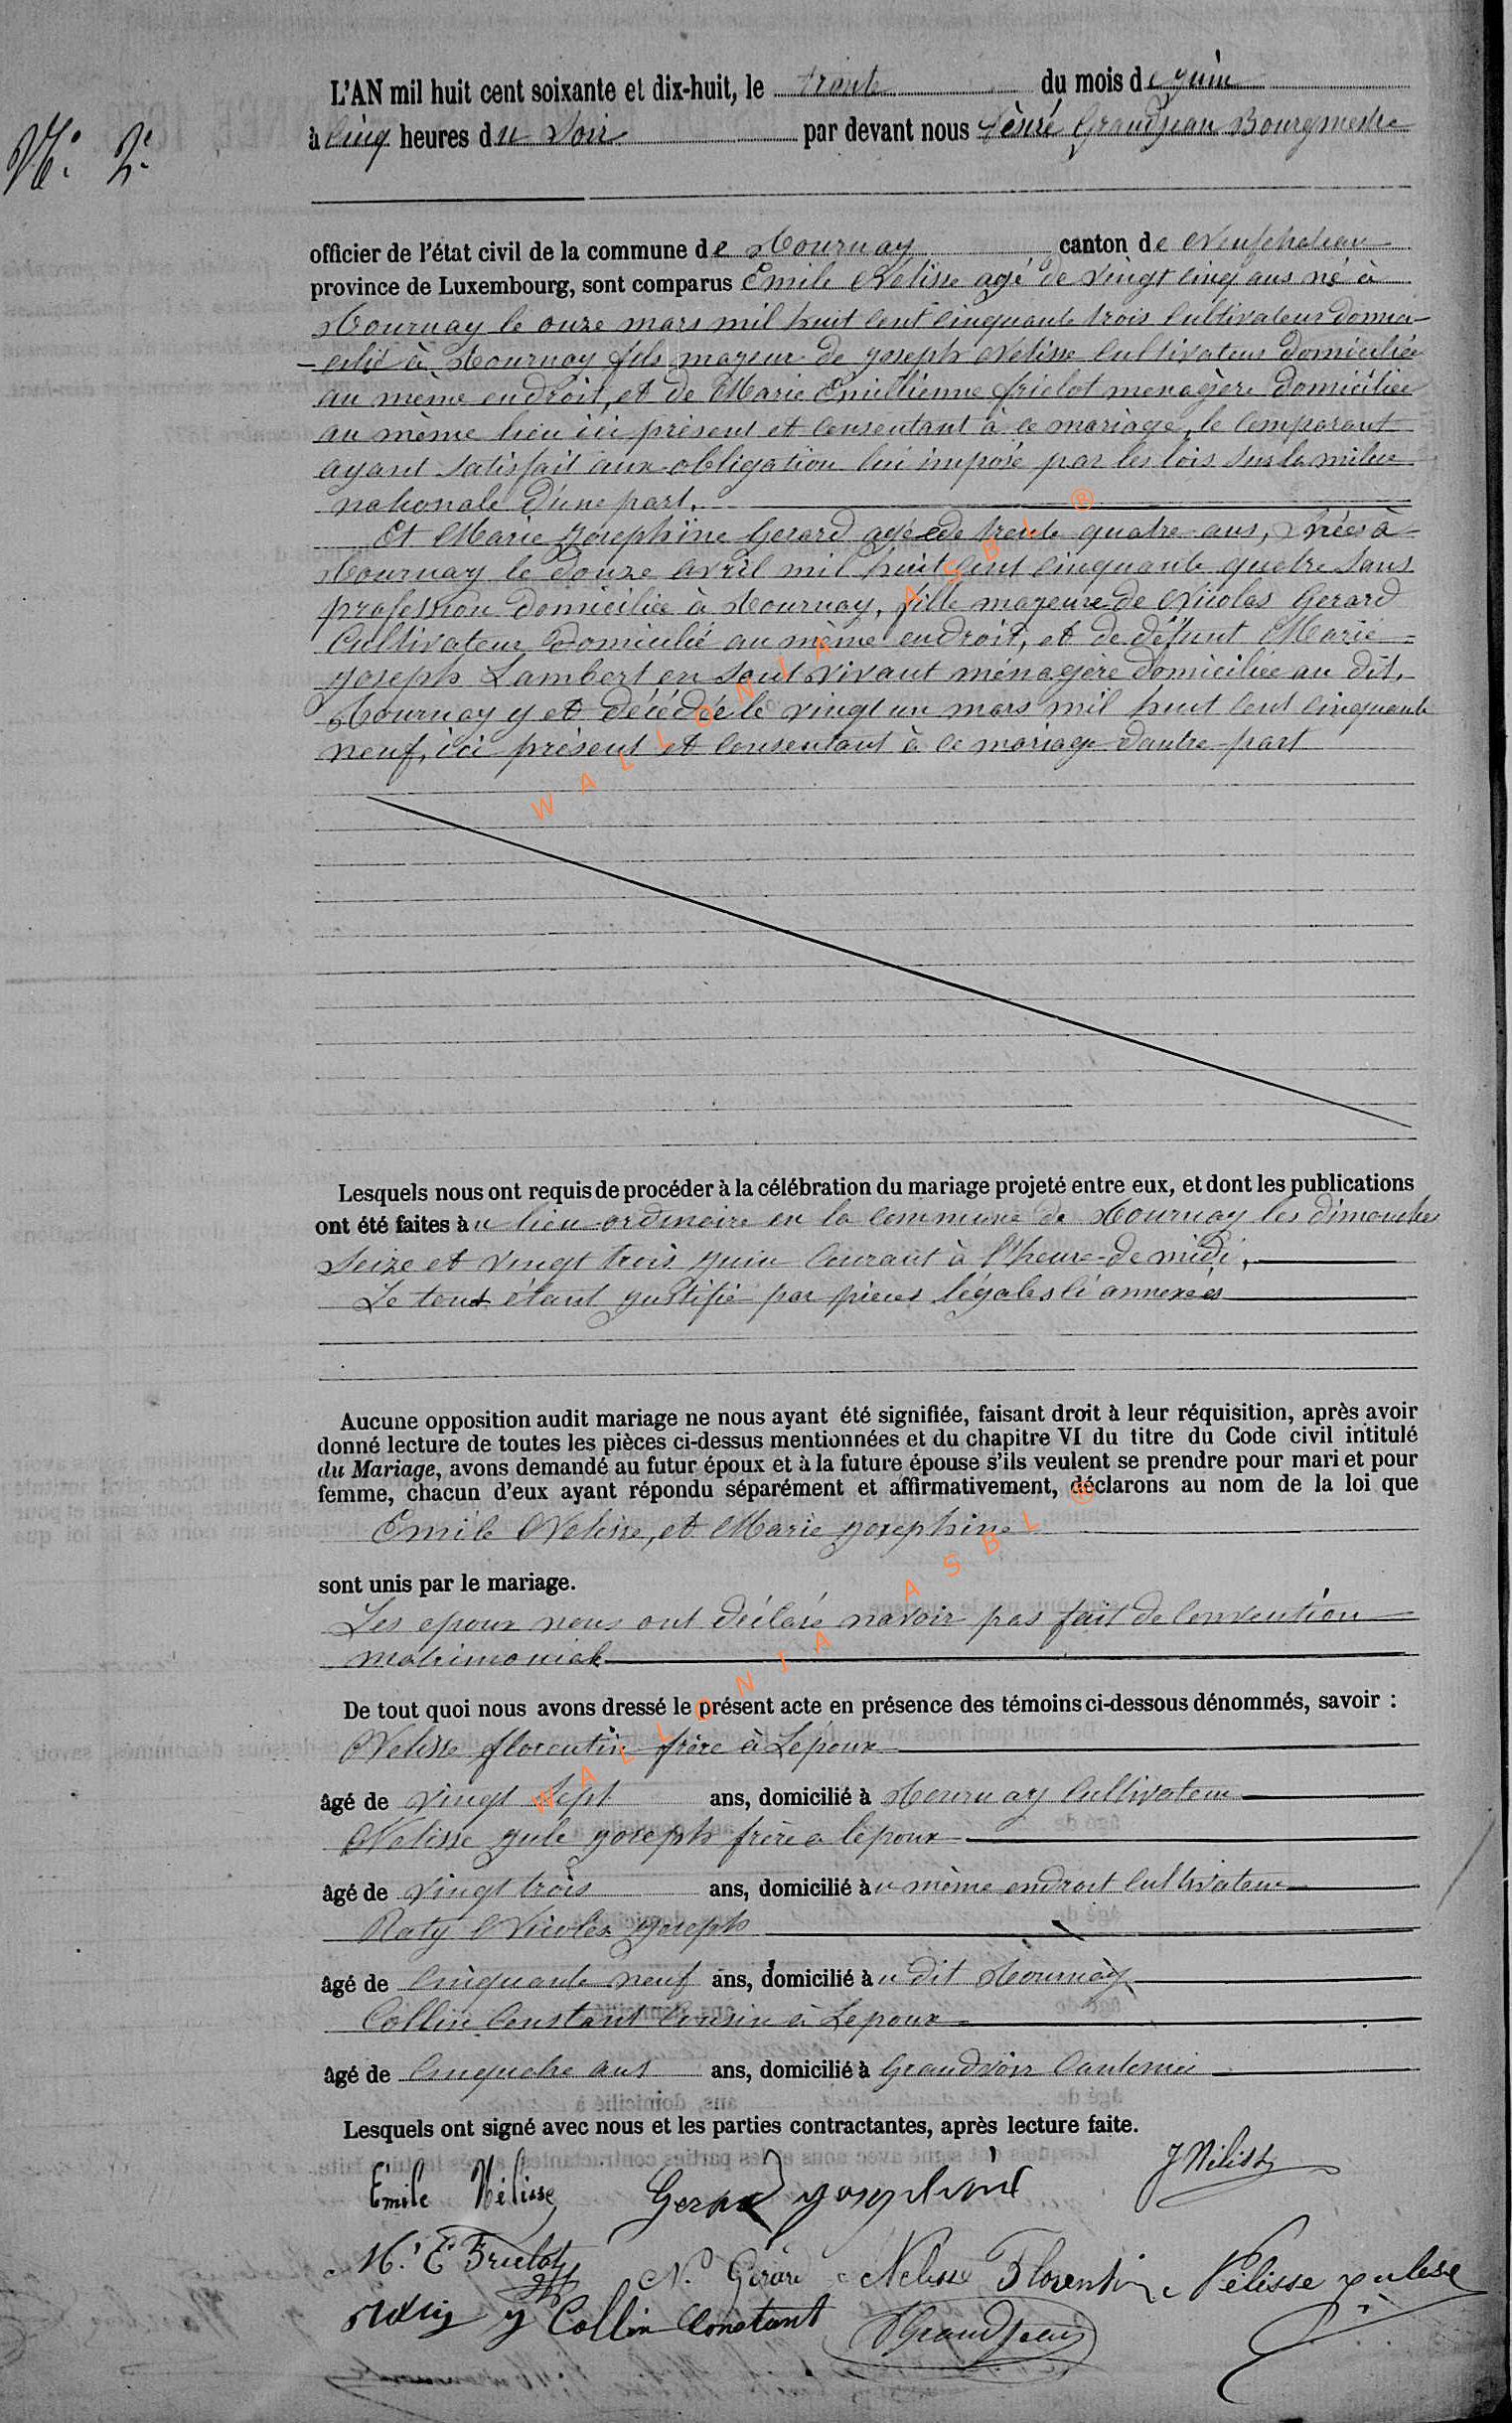 N° 2.
L'AN mil huit cent soixante et dix-huit, le trente du mois de juin
à cinq heures du Soir par devant nous Désiré Grandjean Bourgmestre
officier de l'état civil de la commune de Tournay canton de Neufchateau
province de Luxembourg, sont comparus Emile Nelisse agé de vingt cinq ans né à
Tournay le onze mars mil huit cent cinquante trois cultivateur domi-
-cilié à Tournay fils majeur de joseph Nelisse cultivateur domiciliée
au même endroit, et de Marie Emillienne friclot menagère domiciliée
au même lieu ici présent et consentant à ce mariage, le comparant
ayant satisfait aux obligation lui imposé par les lois sur la milice
nationale d'une part.
Et Marie josephine Gerard agée de trente quatre ans, née à
Tournay le douze avril mil huit cent cinquante quatre Sans
profession domiciliée à Tournay, fille majeure de Nicolas Gerard
Cultivateur domicilié au même endroit, et de défunt Marie
joseph Lambert en sont vivant ménagère domiciliée au dit,
Tournay y et décédée le vingt un mars mil huit cent cinquante
neuf, ici présent et consentant à ce mariage dautre part
WALLONIA ASBL ®
Lesquels nous ont requis de procéder à la célébration du mariage projeté entre eux, et dont les publications
ont été faites au lieu ordinaire en la commune de Tournay les dimanches
Seize et vingt trois juin courant à l'heure de midi,
Le tout étant justifié par pièces légales ci annexées
Aucune opposition audit mariage ne nous ayant été signifiée, faisant droit à leur réquisition, après avoir
donné lecture de toutes les pièces ci-dessus mentionnées et du chapitre VI du titre du Code civil intitulé
du Mariage, avons demandé au futur époux et à la future épouse s'ils veulent se prendre pour mari et pour
femme, chacun d'eux ayant répondu séparément et affirmativement, déclarons au nom de la loi que
Emile Nelisse, et Marie josephine
sont unis par le mariage.
Les epoux nous ont déclaré navoir pas fait de convention
matrimoniale
WALLONIA ASBL ®
De tout quoi nous avons dressé le présent acte en présence des témoins ci-dessous dénommés, savoir :
Nelisse florentin frère à Lepoux
âgé de vingt Sept ans, domicilié à Tournay cultivateur
Nelisse jule joseph frère a lepoux
âgé de vingt trois ans, domicilié au même endroit cultivateur
Raty Nicolas joseph
âgé de cinquante neuf ans, domicilié au dit Tournay
Collin Constant Cousin à Lepoux
âgé de ans, domicilié à Grandvoir
Lesquels ont signé avec nous et les parties contractantes, après lecture faite.
Emile Nélisse Gerard josephine J Nélisse
M. E Friclot N. Gérard Nelisse Florentin Nélisse jules
Collin Constant DGrandjean